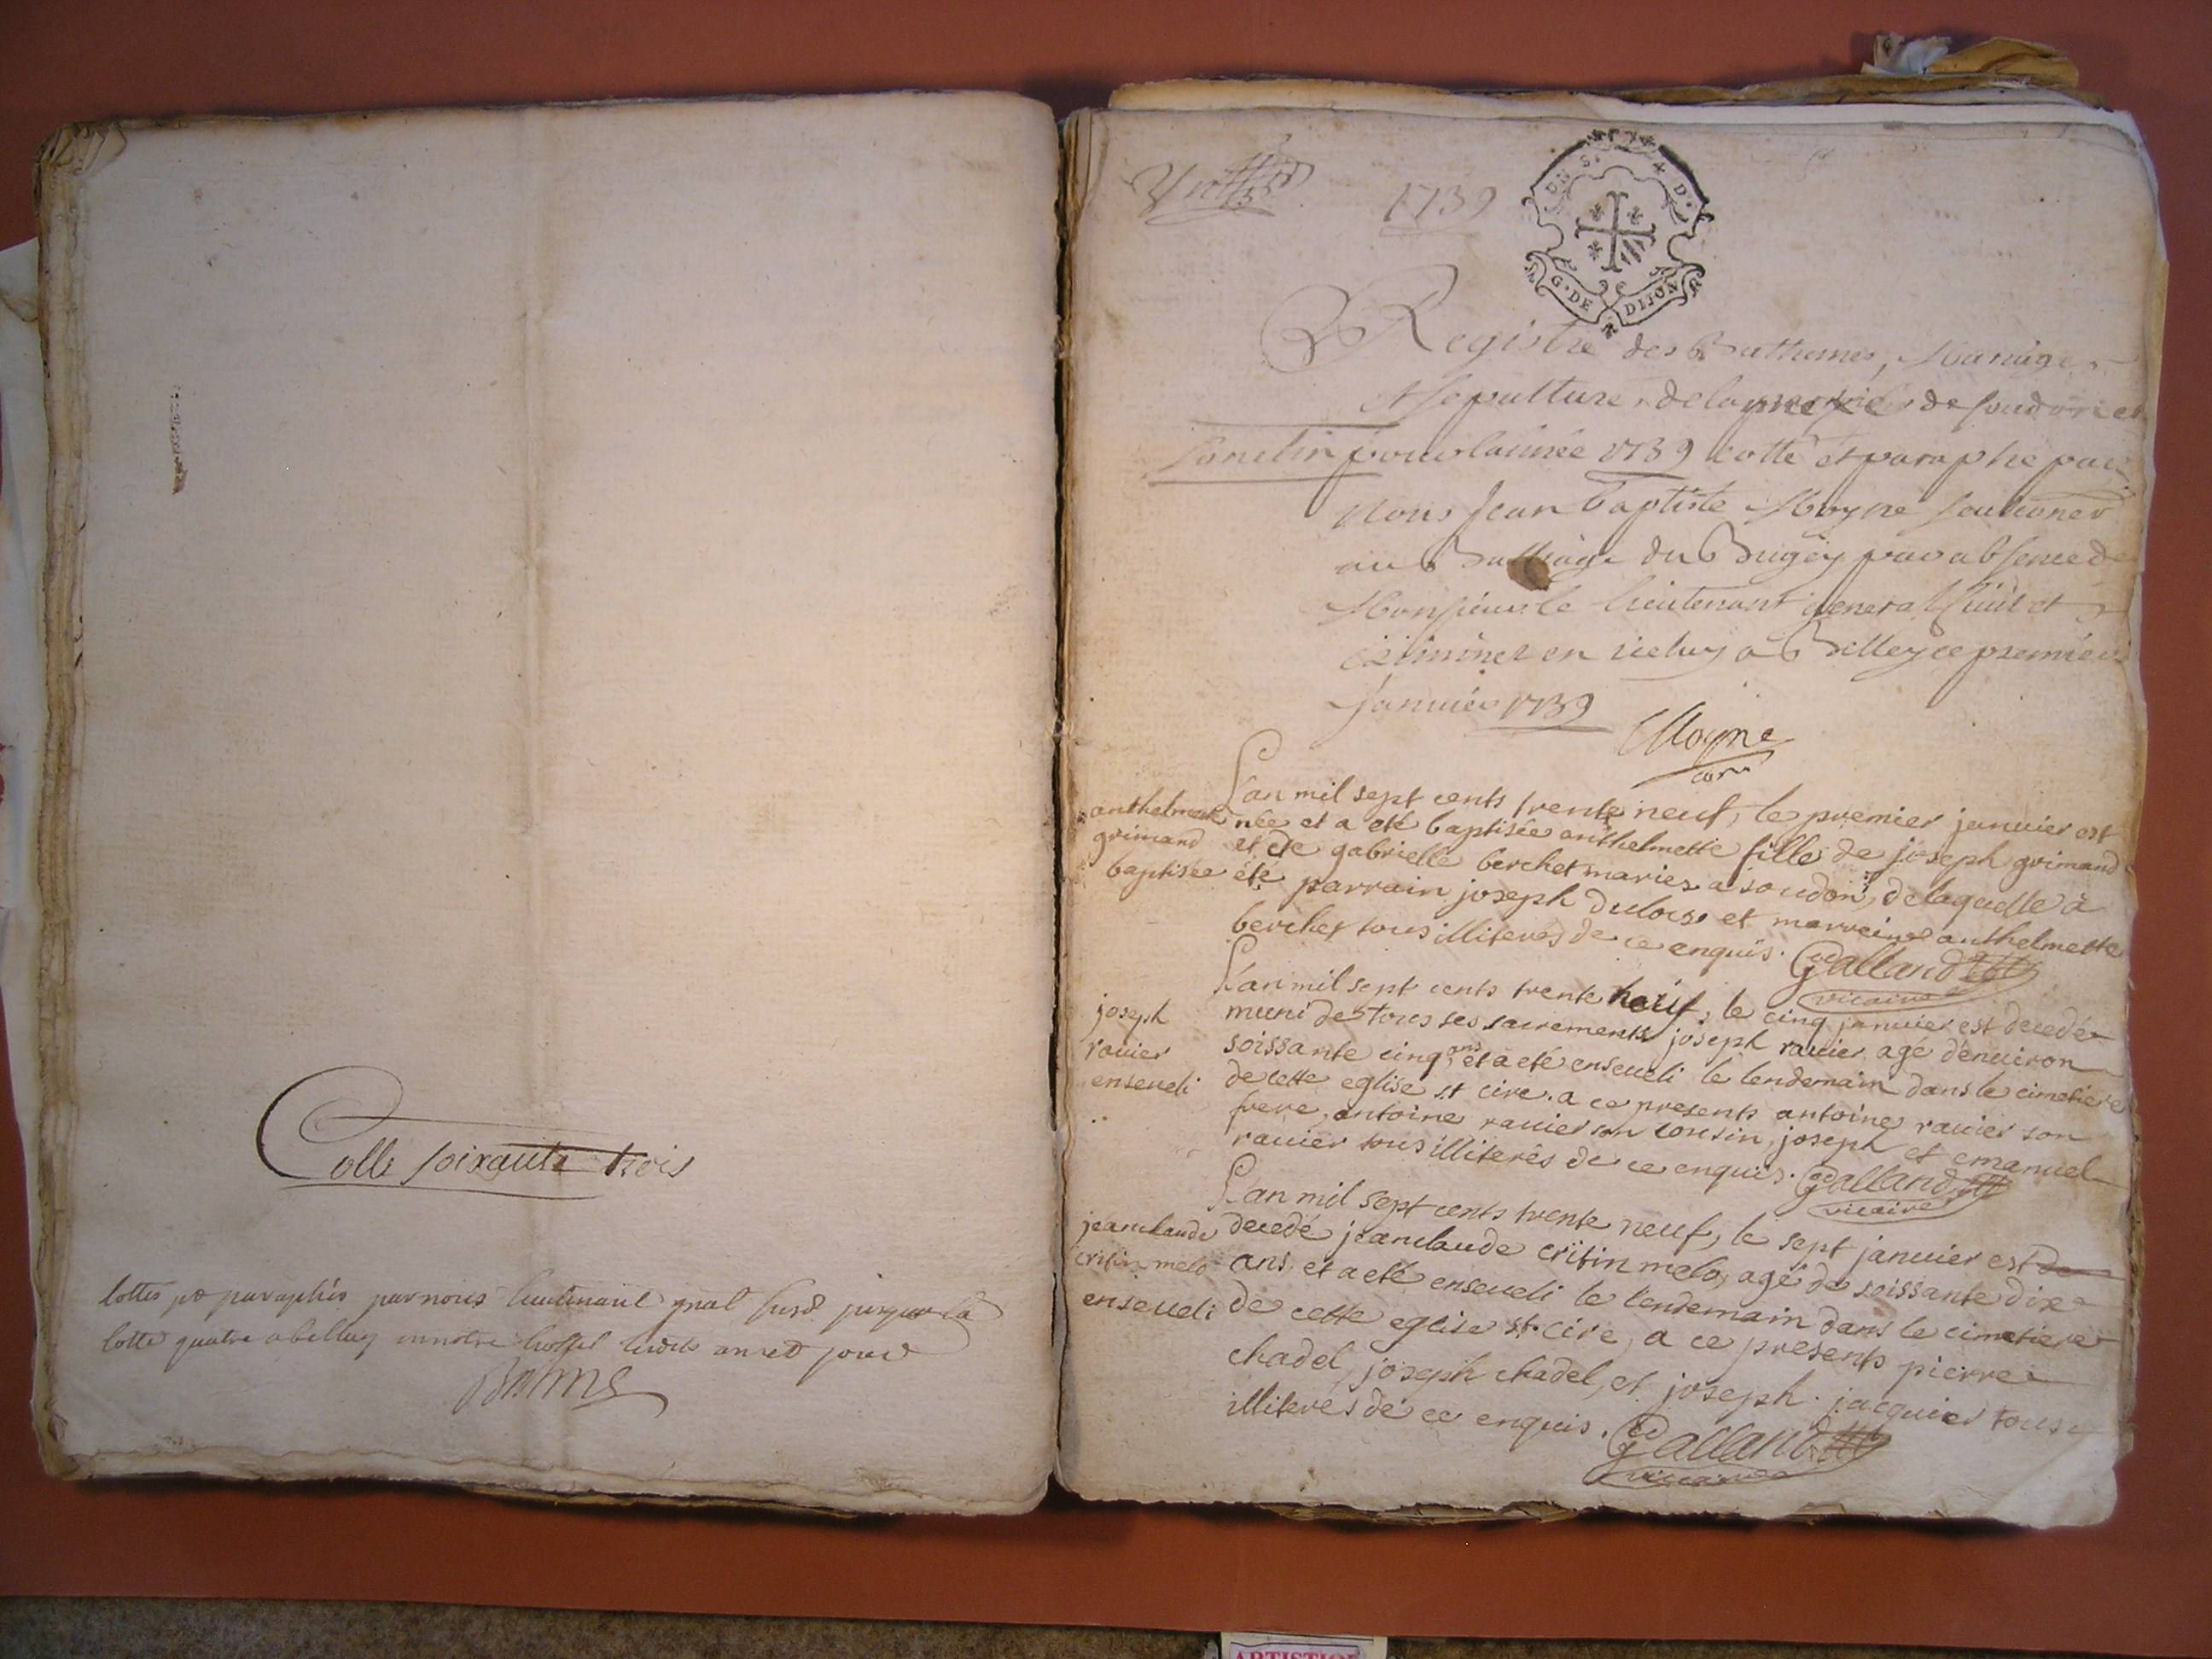 Cotte soixante trois
Cottes et paraphés par nous lieutenant gnal susd jusqua la
cotte quatre a belley en notre hostel lesdits an et jour
1739
G. DE DIJON
Registre des Bathemes, Mariages
et sepulture de la de soudon et
pour lannée 1739 cotté et paraphé par
Nous Jean baptiste Moyne
au Bailliage du Bugey par absence de
Monsieur le lieutenant general Civil et
Criminel en iceluy a Belley ce premier
Janvier 1739
Moyne
Lan mil sept cents trente neuf, le premier janvier est
anthelmette née et a eté baptisée anthelmette fille de joseph grimand
grimand et de gabrielle berchet mariez a soudon, de laquelle à
baptisée été parrain joseph duloise et marreine anthelmette
berchet tous illiteres de ce enquis. Galland
vicaire
Lan mil sept cents trente neuf, le cinq janvier est decedé
joseph muni de tous ses sacrements joseph ravier agé d'environ
ravier soissante cinq ans et a eté enseveli le lendemain dans le cimetiere
enseveli de cette eglise st cire. a ce presents antoine ravier son
frere, antoine ravier son cousin, joseph et emanuel
ravier tous illiterés de ce enquis. Galland
vicaire
Lan mil sept cents trente neuf, le sept janvier est de
jeanclaude decedé jeanclaude critin melo, agé de soissante dix
critin melo ans, et a eté enseveli le lendemain dans le cimetiere
enseveli de cette eglise st. cire, a ce presents pierre
chadel, joseph chadel, et joseph jacquier tous
illiterés de ce enquis. Galland
vicaire